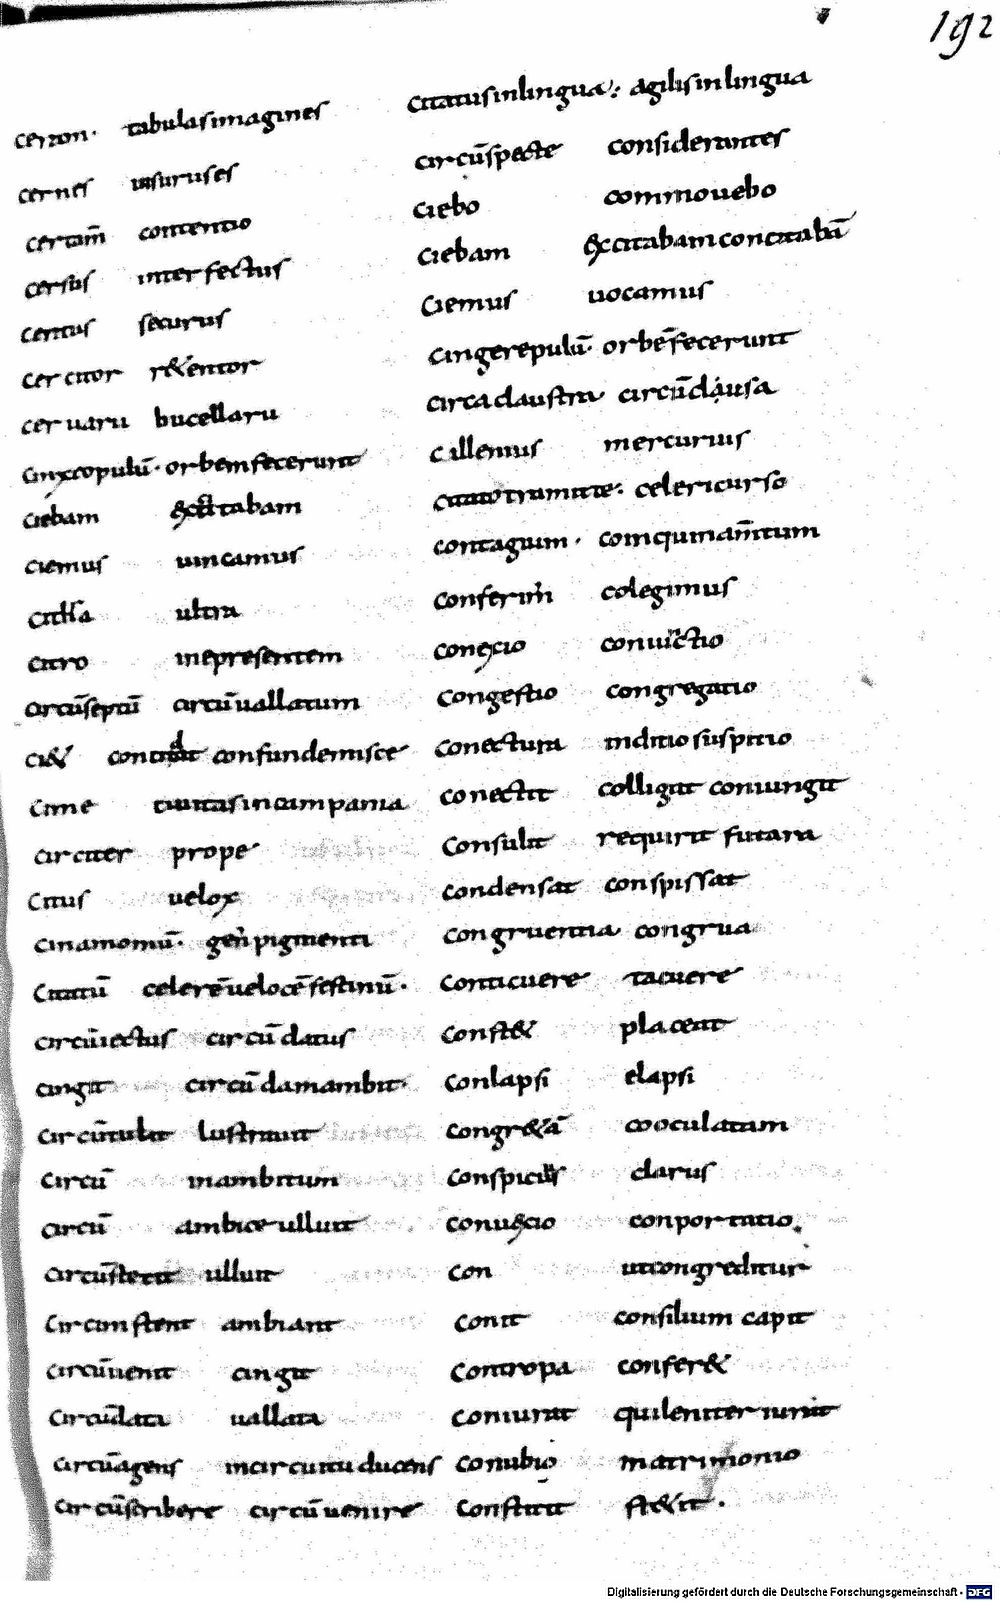 192
cerron· tabulas imagines
cernes uisurus es
certam̄ contentio
cersus interfectus
certus securus
cercitor r&entor
ceruaru bucellaru
cinxcopulū· orbem fecerunt
ciebam excitabam
ciemus uincamus
citra ultra
citro in epresentem
circūseptū circū uallatum
ci& confundemisce
cime ciuitas in campania
circiter prope
citus uelox
cinamomū· geń pigmenti
citatū celerē uelocē festinū·
circūiectus circū datus
cingit circū dam ambit·
circūtulit lustrauit
circū in ambitum
circū ambice ulluit
circūstetit ulluit
circumstent ambiant
circūuenit cingit
circūdata uallata
circūagens in circuitu ducens
circūscribere circū uenire
citatus in lingua: agilis in lingua
circūspecte considerantes
ciebo commouebo
ciebam excitabam concitabā
ciemus uocamus
cingerepulū· orbē fecerunt
circa claustra circū clausa
cillenius mercurius
citato tramite: celeri curso
contagium· comquinam̄tum
conferim̄ colegimus
conexio conuictio
congestio congregatio
conectura inditio suspitio
conectit colligat coniungit
consulit requirit futara
condensat conspissat
congruentia congrua
conticuere tacuere
const& placeat
conlapsi elapsi
congr&ā cooculatam
conspicuus clarus
conuexio conportatio
con utcongreditur
conit consilium capit
contropa confer&
coniurat qui leniter iurat
conubio matrimonio
constitit st&it·
Digitalisierung gefördert durch die Deutsche Forschungsgemeinschaft - DFG